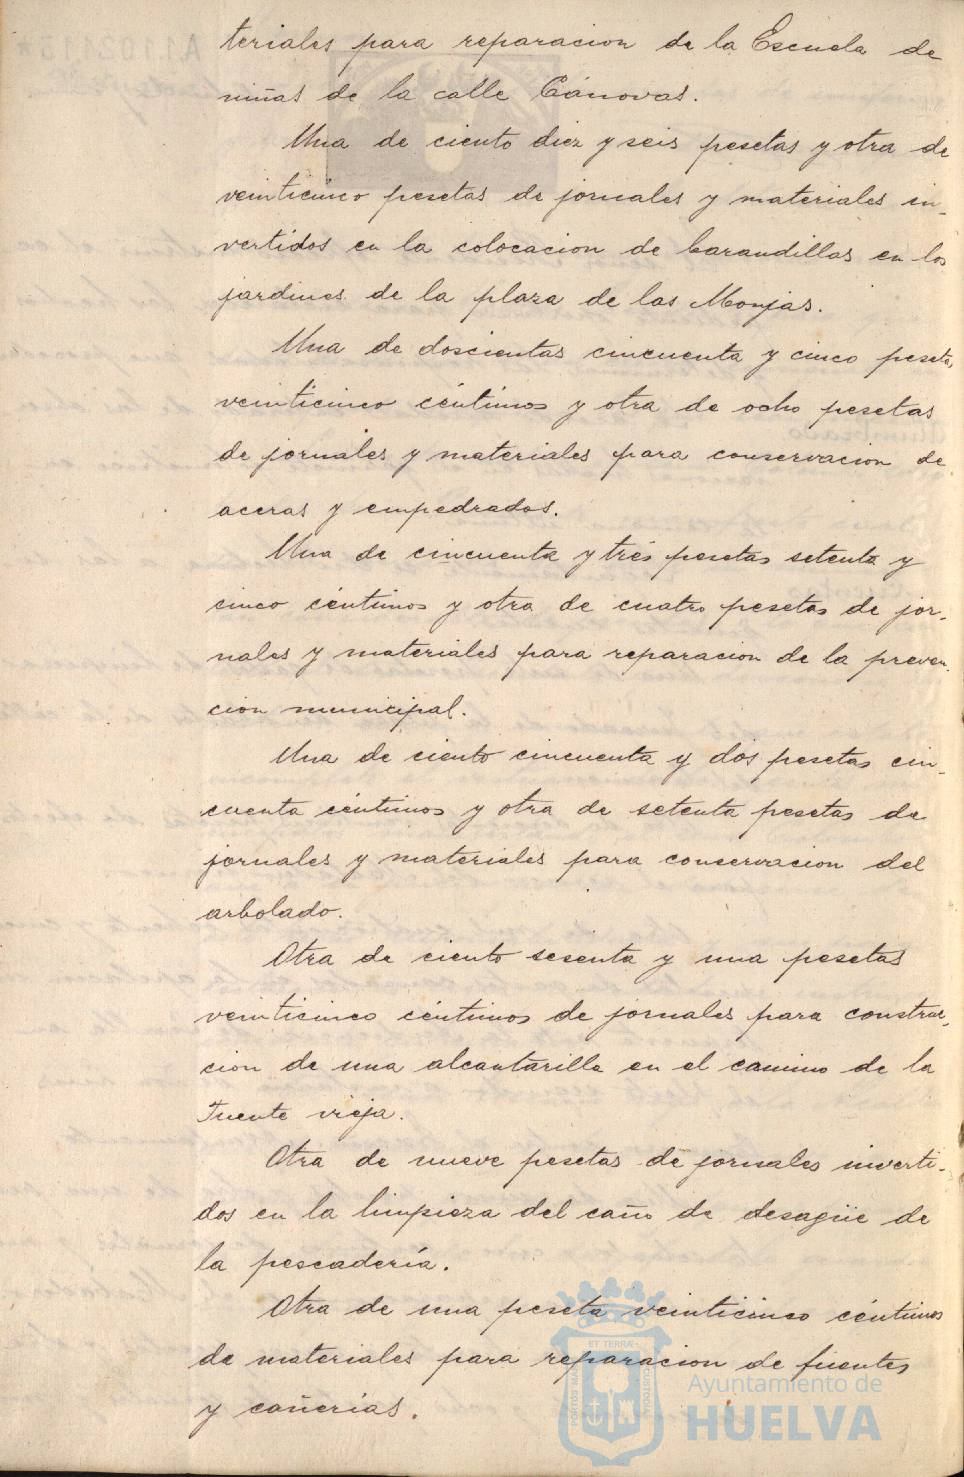 teriales para reparacion de la Escuela de
niñas de la calle Cánovas.
Una de ciento diez y seis pesetas y otra de
veinticinco pesetas de jornales y materiales in-
vertidos en la colocacion de barandillas en los
jardines de la plaza de las Monjas.
Una de doscientas cincuenta y cinco pesetas
veinticinco céntimos y otra de ocho pesetas
de jornales y materiales para conservacion de
aceras y empedrados.
Una de cincuenta y tres pesetas setenta y
cinco céntimos y otra de cuatro pesetas de jor-
nales y materiales para reparacion de la preven-
cion municipal.
Una de ciento cincuenta y dos pesetas cin-
cuenta céntimos y otra de setenta pesetas de
jornales y materiales para conservacion del
arbolado.
Otra de ciento sesenta y una pesetas
veinticinco céntimos de jornales para construc-
cion de una alcantarilla en el camino de la
Fuente vieja.
Otra de nueve pesetas de jornales inverti-
dos en la limpieza del caño de desagüe de
la pescadería.
Otra de una peseta veinticinco céntimos
de materiales para reparacion de fuentes
y cañerías.
Ayuntamiento de
HUELVA